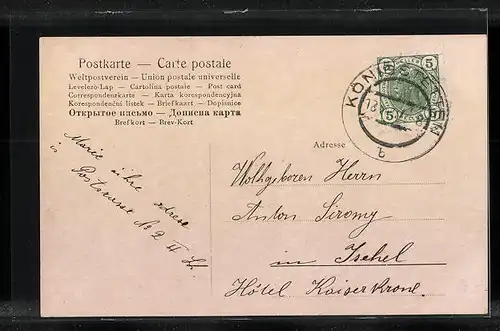 Postkarte — Carte postale
Weltpostverein — Union postale universelle
Levelező-Lap — Cartolina postale — Post card
Correspondenzkarte — Karta korespondencyjna
Korespondenční lístek — Briefkaart — Dopisnice
Открытое письмо — Дописна карта
Brefkort — Brev-Kort
5 5
5 5
KÖNIGST
b
Adresse
Marie
Adresse
is Postgasse No 2 II St.
Wohlgeboren Herrn
Anton Siromy
in Ischel
Hôtel Kaiserkrone.